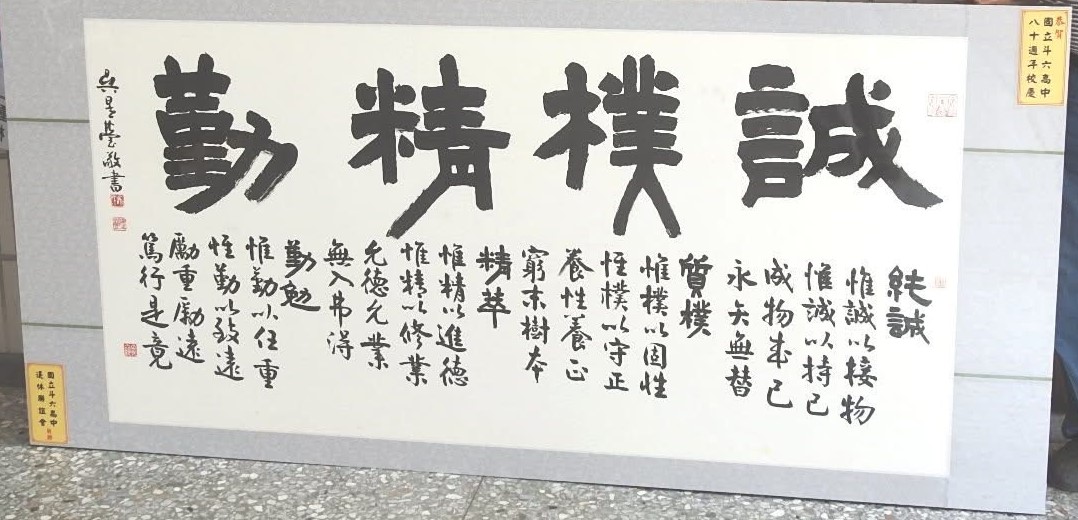 恭賀
國立斗六高中
八十週年校慶
誠樸精勤
純誠
惟誠以接物
惟誠以持己
成物成己
永矢無替
質樸
惟樸以固性
惟樸以守正
養性養正
窮末樹本
精萃
惟精以進德
惟精以修業
允德允業
無入弗得
勤勉
惟勤以任重
惟勤以致遠
勵重勵遠
篤行是竟
敬書
國立斗六高中
退休聯誼會